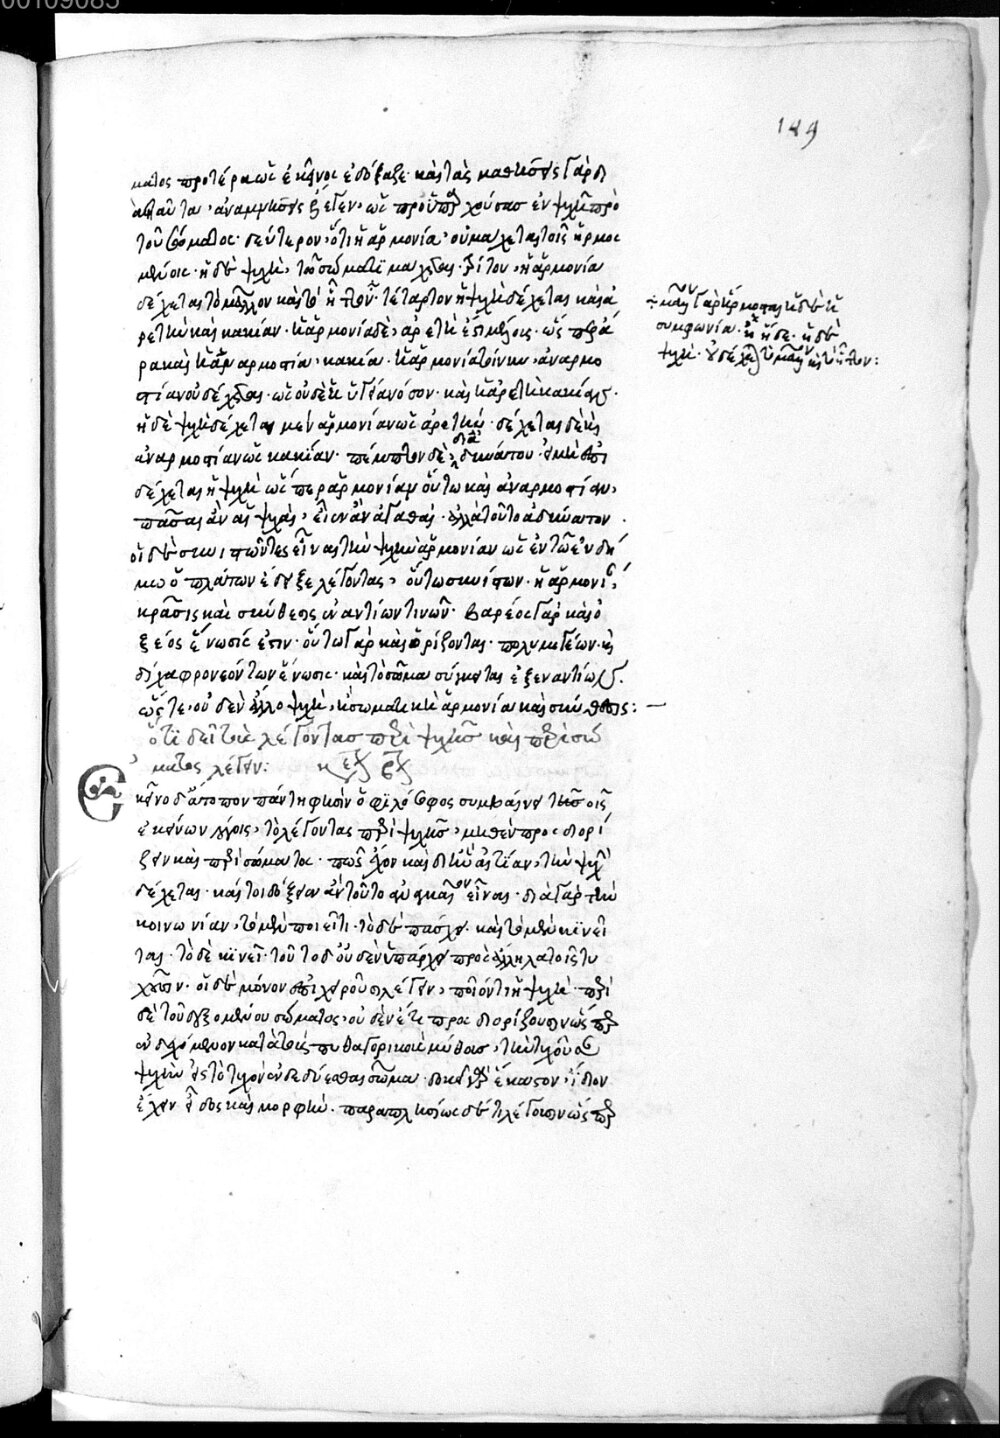 00109085
189
ματος προτέρα ὡς ἐκεῖνος ἐδόξαζε· καὶ τὰς μαθήσεις γὰρ διὰ
ταῦτα, ἀναμνήσεις ἔλεγεν, ὡς προϋπαρχούσας ἐν ψυχῇ πρὸ
τοῦ σώματος· δεύτερον, ὅτι ἡ ἁρμονία, οὐ μάχεται τοῖς ἡρμοσ
μένοις· ἡ δὲ ψυχὴ, τῷ σώματι μάχεται· τρίτον, ἡ ἁρμονία
δέχεται τὸ μᾶλλον καὶ τὸ ἧττον· τέταρτον ἡ ψυχὴ δέχεται καὶ ἀ
ρετὴν καὶ κακίαν· ἡ ἁρμονία δὲ, ἀρετὴ
ἡ ἀναρμοστία, κακία· ἡ ἁρμονία τοίνυν, ἀναρμο
στίαν οὐ δέχεται· ὡς οὐδὲ ἡ ὑγίεια νόσον· καὶ ἡ ἀρετὴ κακίας·
ἡ δὲ ψυχὴ δέχεται μὲν ἁρμονίαν ὡς ἀρετήν· δέχεται δὲ καὶ
ἀναρμοστίαν ὡς κακίαν· πέμπτον δὲ, διὰ
δέχεται ἡ ψυχὴ ὥσπερ ἁρμονίαν οὕτω καὶ ἀναρμοστίαν,
πᾶσαι ἂν αἱ ψυχαὶ, εἶεν ἂν ἀγαθαί· ἀλλὰ τοῦτο ἀδύνατον·
οἱ δὲ εἰπόντες εἶναι τὴν ψυχὴν ἁρμονίαν ὡς ἐν τῷ
ὁ πλάτων ἔδοξε λέγοντας, οὕτως εἶπον· ἡ ἁρμονία,
κρᾶσις καὶ σύνθεσις ἐναντίων τινῶν· βαρέος γὰρ καὶ ὀ
ξέος ἕνωσίς ἐστιν· οὕτω γὰρ καὶ ὁρίζονται· πολυμιγέων καὶ
δίχα φρονεόντων ἕνωσις· καὶ τὸ σῶμα σύγκειται ἐξ ἐναντίων·
ὥστε, οὐδὲν ἄλλο ψυχὴ, ἢ σωματικὴ ἁρμονία καὶ σύνθεσις: —
ὅτι δεῖ τοὺς λέγοντας περὶ ψυχῆς καὶ περὶ σώ
ματος λέγειν:
Εκεῖνο δ᾽ ἄτοπον πάντῃ φησὶν ὁ φιλόσοφος συμβαίνειν τοῖς
ἐκείνων λόγοις, τὸ λέγοντας περὶ ψυχῆς, μηθὲν προσδιορί
ζειν καὶ περὶ σώματος· πῶς ἔχον καὶ διὰ τίν᾽ αἰτίαν, τὴν ψυχὴν
δέχεται· καίτοι δόξειεν ἂν τοῦτο ἀναγκαῖον εἶναι· διὰ γὰρ τὴν
κοινωνίαν, τὸ μὲν ποιεῖ τι· τὸ δὲ πάσχει· καὶ τὸ μὲν κινεῖ
ται· τὸ δὲ κινεῖ· τούτων δ᾽ οὐδὲν ὑπάρχει πρὸς ἄλληλα τοῖς τυ
χοῦσιν· οἱ δὲ μόνον ἐπιχειροῦσι λέγειν, ποῖόν τι ἡ ψυχή· περὶ
δὲ τοῦ δεξομένου σώματος, οὐδὲν ἔτι προσδιορίζουσιν ὥσπερ
ἐνδεχόμενον κατὰ τοὺς πυθαγορικοὺς μύθους, τὴν τυχοῦσαν
ψυχὴν εἰς τὸ τυχὸν ἐνδύεσθαι σῶμα· δοκεῖ γὰρ ἕκαστον, ἴδιον
ἔχειν εἶδος καὶ μορφήν· παραπλήσιον δὲ λέγουσιν ὥσπερ